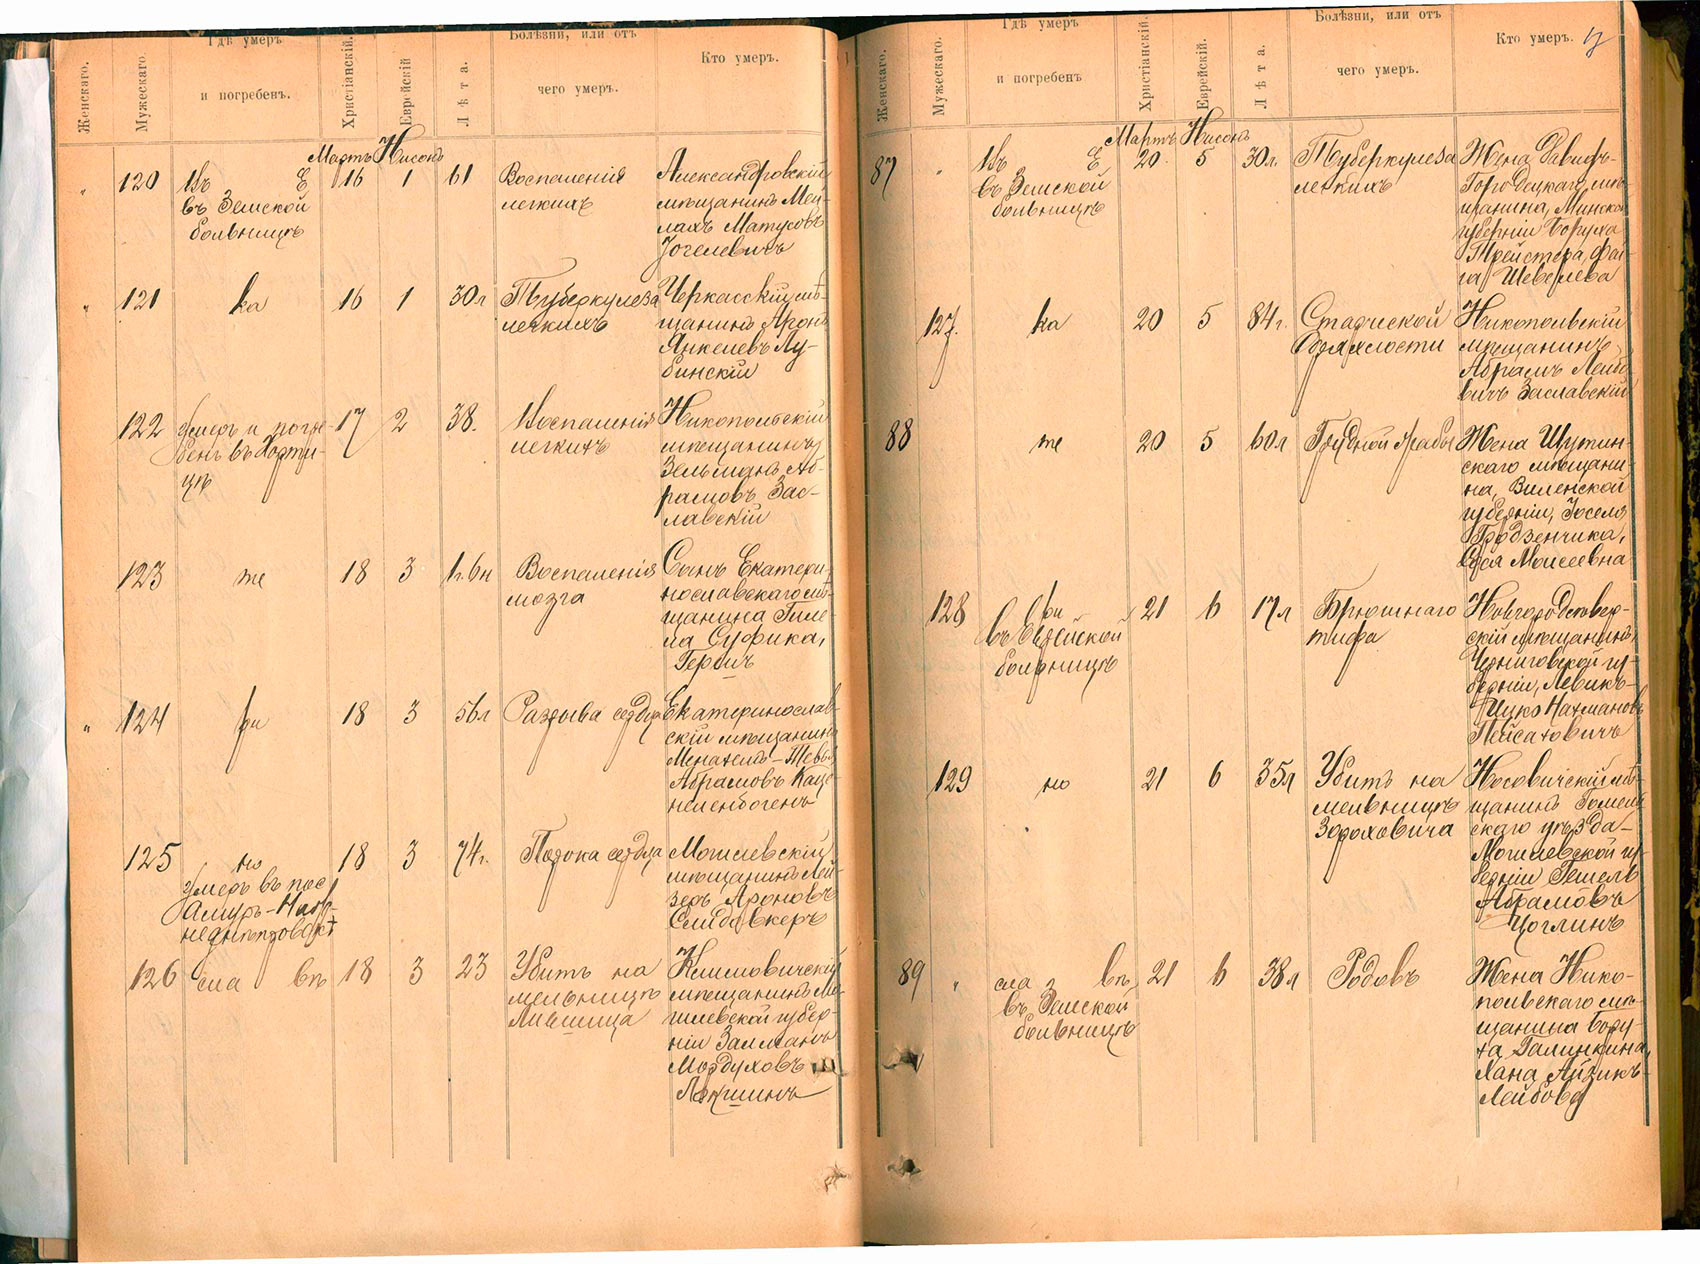 Женскаго.
Мужескаго.
Гдѣ умеръ
и погребенъ.
Христіанскій.
Еврейскій
Лѣта.
Болѣзни, или отъ
чего умеръ.
Кто умеръ.
Мартъ Нисонъ
120
Въ Е
въ Земской
больницѣ
16
1
61
Воспаленія
легкихъ
Александровскій
мѣщанинъ Мей-
лахъ Матусовъ
Іогелевичъ
121
ка
16
1
30 л
Туберкулеза
легкихъ
Черкасскій мѣ-
щанинъ Аронъ
Янкелевъ Лу-
бинскій
122
Умеръ и погре-
бенъ въ Хорти-
цѣ
17
2
38.
Воспаленія
легкихъ
Никопольскій
мѣщанинъ
Зельманъ Аб-
рамовъ Зас-
лавскій
123
те
18
3
1 г. 6 м
Воспаленія
мозга
Сынъ Екатери-
нославскаго мѣ-
щанина Гиле-
ла Суфика,
Гершъ
124
ри
18
3
56 л
Разрыва сердца
Екатеринослав-
скій мѣщанинъ
Менахемъ-Тевья
Абрамовъ Каце-
неленбогенъ
125
но
Умеръ въ пос
Амуръ-Ниж-
неднѣпровскѣ
18
3
74 г.
Порока сердца
Могилевскій
мѣщанинъ Лей-
зеръ Ароновъ
126
сла вѣ
18
3
23
Убитъ на
мельницѣ
Лившица
Климовичскій
мѣщанинъ Мо-
гилевской губер-
ніи Залманъ
Мордуховъ
Лакшинъ
Женскаго.
Мужескаго.
Гдѣ умеръ
и погребенъ
Христіанскій.
Еврейскій.
Лѣта.
Болѣзни, или отъ
чего умеръ.
Кто умеръ.
Мартъ Нисонъ
87
Въ Е
въ Земской
больницѣ
20
5
30 л.
Туберкулеза
легкихъ
Жена Давидъ-
Городецкаго мѣ-
щанина, Минской
губерніи Боруха
Трейстера, Фей-
га Шевелева
127.
ка
20
5
84 г.
Старческой
дряхлости
Никопольскій
мѣщанинъ
Абрамъ Лейбо-
вичъ Заславскій
88
те
20
5
60 л
Грудной жабы
Жена
скаго мѣщани-
на, Виленской
губерніи, Іоселя
Гродзенчика,
Моисеевна
128
ри
въ Еврейской
больницѣ
21
6
17 л
Брюшнаго
тифа
Новгородсѣвер-
скій мѣщанинъ,
Черниговской гу-
берніи, Левикъ-
Ицко Нахмановъ
Пейсаховичъ
129
но
21
6
35 л
Убитъ на
мельницѣ
Зороховича
Носовичскій мѣ-
щанинъ Гомель-
скаго уѣзда-
Могилевской гу-
берніи Гешель
Абрамовъ
Цоглинъ
89
сла вѣ
въ Земской
больницѣ
21
6
38 л
Родовъ
Жена Нико-
польскаго мѣ-
щанина Бору-
ха Галинкина,
Хана Айзикъ-
Лейбова